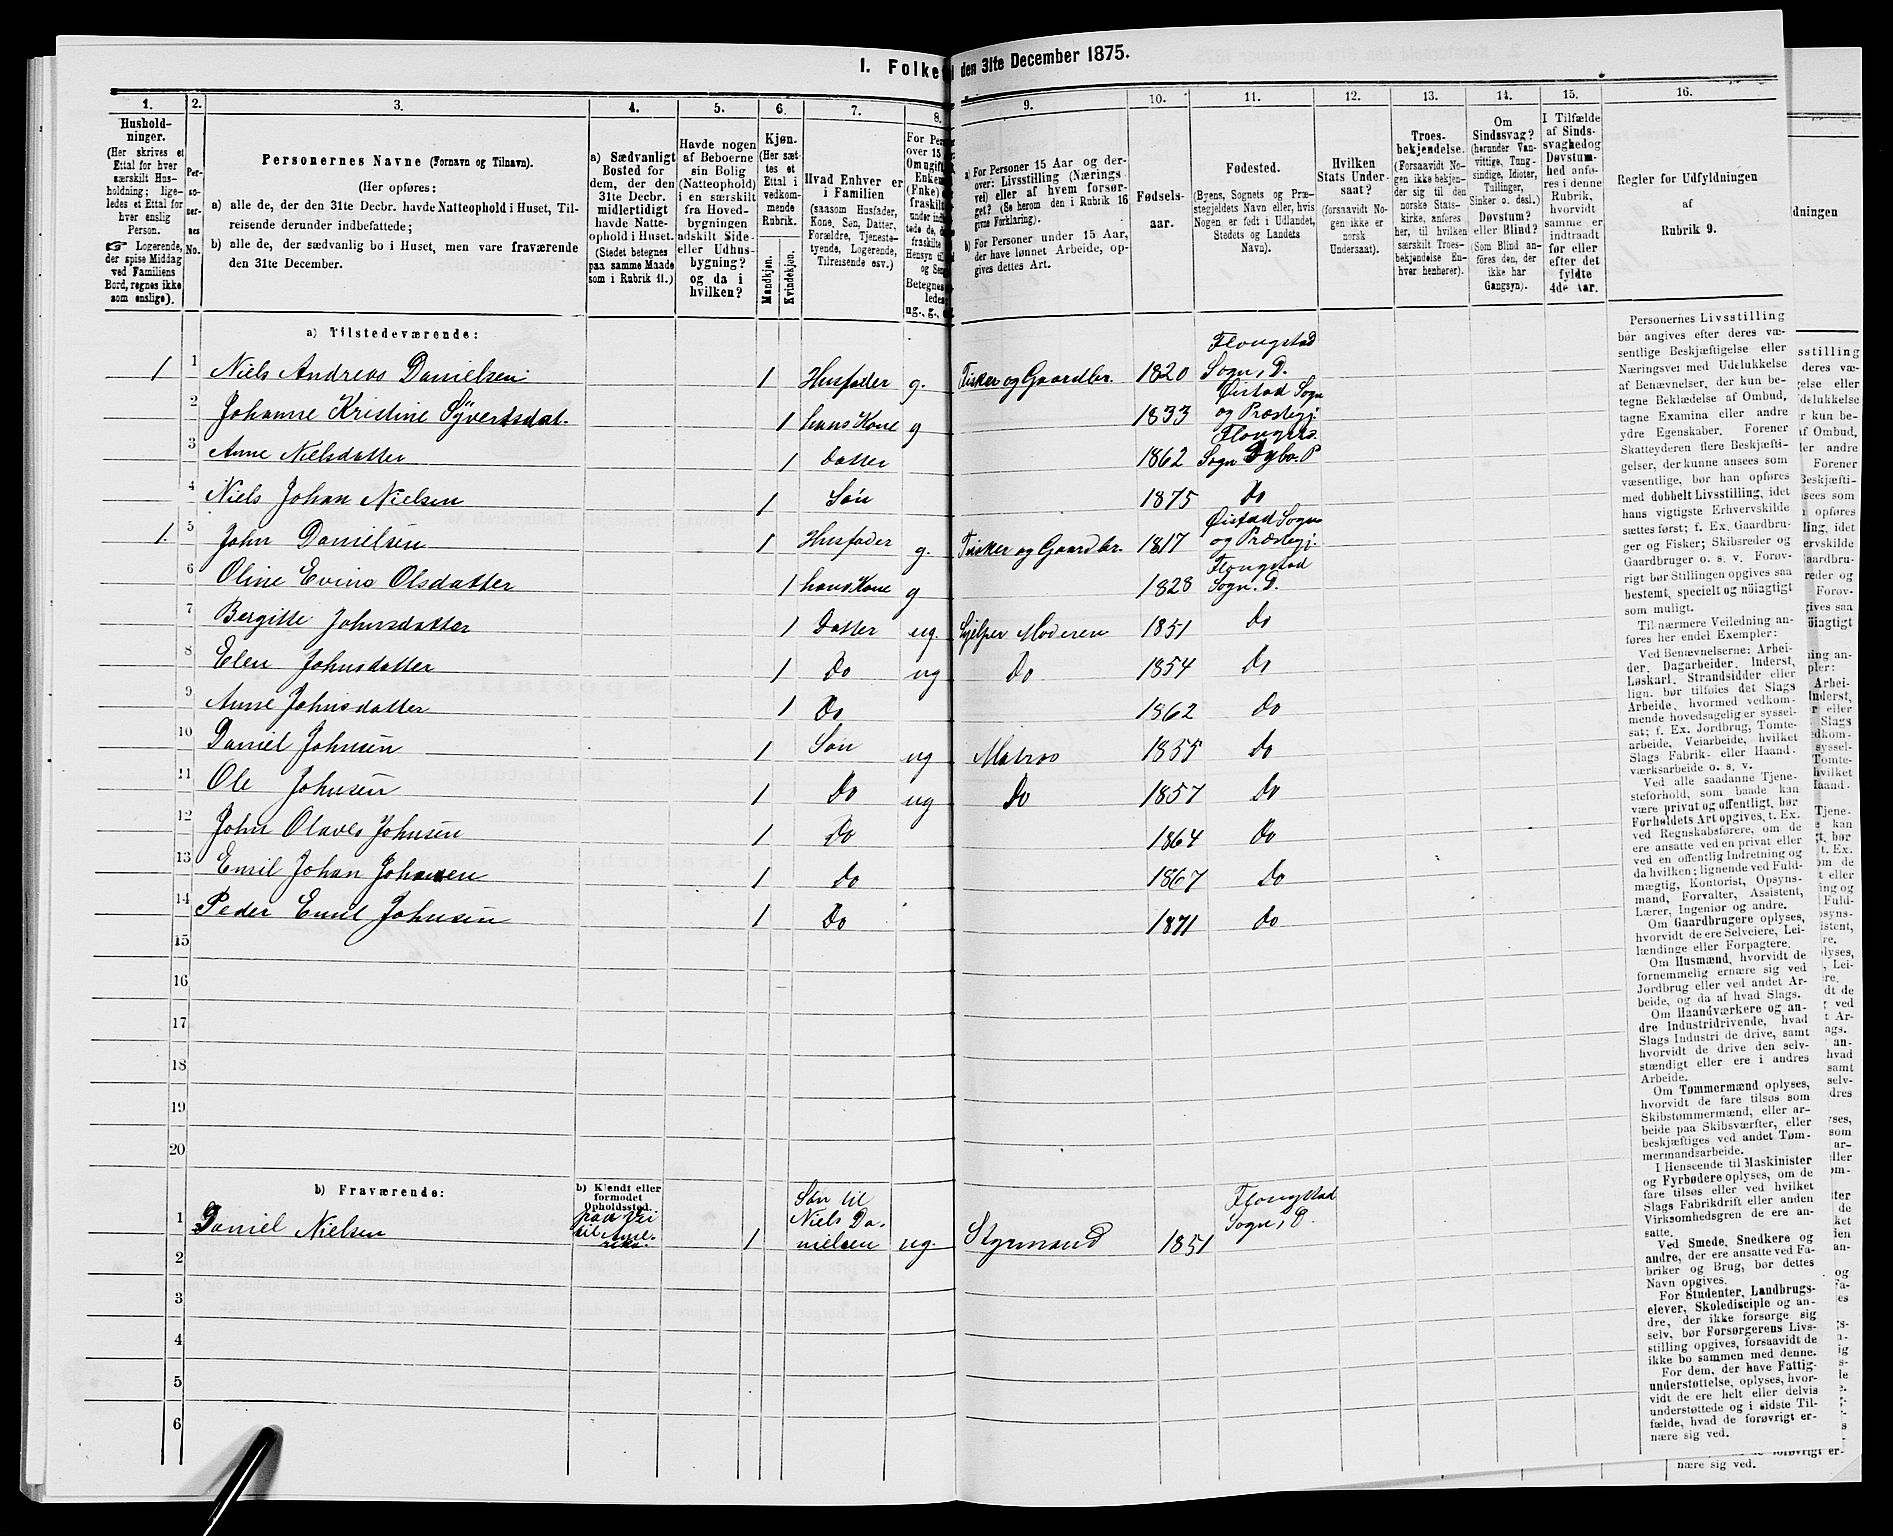 I. Folke den 31te December 1875.
1. 2. 3. 4. 5. 6. 7. 8. 9. 10. 11. 12. 13. 14. 15. 16.
Hushold-
ninger.
(Her skrives et
Ettal for hver
særskilt Hus-
holdning; lige-
ledes et Ettal for
hver enslig
Person.
☞ Logerende,
der spise Middag
ved Familiens
Bord, regnes ikke
som enslige).
Per-
so-
ner-
nes
No.
Personernes Navne (Fornavn og Tilnavn).
(Her opføres:
a) alle de, der den 31te Decbr. havde Natteophold i Huset, Til-
reisende derunder indbefattede;
b) alle de, der sædvanlig bo i Huset, men vare fraværende
den 31te December.
a) Sædvanligt
Bosted for
dem, der den
31te Decbr.
midlertidigt
havde Natte-
ophold i Huset.
(Stedet betegnes
paa samme Maade
som i Rubrik 11.)
Havde nogen
af Beboerne
sin Bolig
(Natteophold)
i en særskilt
fra Hoved-
bygningen
adskilt Side-
eller Udhus-
bygning?
og da i
hvilken?
Kjøn.
(Her sæt-
tes et
Ettal i
vedkom-
mende
Rubrik.
Mandkjøn.
Kvindekjøn.
Hvad Enhver er
i Familien
(saasom Husfader,
Kone, Søn, Datter,
Forældre, Tjeneste-
tyende, Logerende,
Tilreisende osv.)
For Pe
over 15
Om ugift
Enken
(Fnke) e
fraskilt
under ind
tede de, d
fraskilte
Hensyn til
og Sen
Betegnes
ledes
ug., g.,
a) For Personer 15 Aar og der-
over: Livsstilling (Nærings
vei) eller af hvem forsør-
get? (Se herom den i Rubrik 16
givne Forklaring).
b) For Personer under 15 Aar,
der have lønnet Arbeide, op-
gives dettes Art.
Fødsels-
aar.
Fødested.
(Byens, Sognets og Præ-
stegjeldets Navn eller, hvis
Nogen er født i Udlandet,
Stedets og Landets
Navn).
Hvilken
Stats Under-
saat?
(forsaavidt No-
gen ikke er
norsk
Undersaat).
Troes-
bekjendelse.
(Forsaavidt No-
gen ikke bekjen-
der sig til den
norske Stats-
kirke, anføres
her, til hvilken
særskilt Troes-
bekjendelse En-
hver henhører).
Om
Sindssvag?
(herunder Van-
vittige, Tung-
sindige, Idioter,
Tullinger,
Sinker o. desl.)
Døvstum?
eller Blind?
(Som Blind an-
føres den, der
ikke har
Gangsyn).
I Tilfælde
af Sinds-
svaghedog
Døvstum-
hed anfø-
res i denne
Rubrik,
hvorvidt
samme er
indtraadt
før eller
efter det
fyldte
4de Aar.
Regler for Udfyldningen
af
Rubrik 9.
a) Tilstedeværende:
1 1 Niels Andreas Danielsen 1 Husfader g. Fisker og Gaardbr. 1820 Flougstad Sogn, D.
2 Johanne Kristine Syvertsdat. 1 hans Kone g 1833 Øistad Sogn og Præstegj.
3 Anne Nielsdatter 1 Datter 1862 Sogn Dybv. P
4 Niels Johan Nielsen 1 Søn 1875 Do
1 5 John Danielsen 1 Husfader g. Fisker og Gaardbr. 1817 Øistad Sogn og Præstegj.
6 Oline Evine Olsdatter 1 hans Kone g 1828 Flougstad Sogn. D.
7 Bergitte Johnsdatter 1 Datter ug. Hjelper Moderen 1851 Do
8 Elen Johnsdatter 1 Do ug Do 1854 Do
9 Anne Johnsdatter 1 Do 1862 Do
10 Daniel Johnsen 1 Søn ug Matros 1855 Do
11 Ole Johnsen 1 Do ug Do 1857 Do
12 John Olaves Johnsen 1 Do 1864 Do
13 Emil Johan Johnsen 1 Do 1867 Do
14 Peder Emil Johnsen 1 Do 1871 Do
15
16
17
18
19
20
b) Fraværende:
b) Kjendt eller
formodet
Opholdssted.
1 Daniel Nielsen paa Vei til Ame-rika. 1 Søn til Niels Da-nielsen ug. Styrmand 1851 Flougstad Sogn, D.
2
3
4
5
6
Personernes Livsstilling
bør angives efter deres væ-
sentlige Beskjæftigelse eller
Næringsvei med Udelukkelse
af Benævnelser, der kun be-
tegne Beklædelse af Ombud,
tagne Examina eller andre
ydre Egenskaber. Forener
Skatteyderen flere Beskjæfti-
gelser, der kunne ansees som
væsentlige, bør han opføres
med dobbelt Livsstilling, idet
hans vigtigste Erhvervskilde
sættes først; f. Ex. Gaardbru-
ger og Fisker; Skibsreder og
Gaardbruger o. s. v. Forøv-
rigt bør Stillingen opgives saa
bestemt, specielt og nöiagtigt
som muligt.
Til nærmere Veiledning an-
føres her endel Exempler:
Ved Benævnelserne: Arbei-
der, Dagarbeider, Inderst,
Løskarl, Strandsidder eller
lign. bør tilføies det Slags
Arbeide, hvormed vedkom-
mende hovedsagelig er syssel-
sat; f. Ex. Jordbrug, Tomte-
arbeide, Veiarbeide, hvilket
Slags Fabrik- eller Haand-
værksarbeide o. s. v.
Ved alle saadanne Tjene-
steforhold, som baade kan
være privat og offentlig, bør
Forholdets Art opgives, t. Ex.
ved Regnskabsførere, om de
ere ansatte ved en privat eller
ved en offentlig Indretning og
da hvilken; lignende ved Fuld-
mægtig, Kontorist, Opsyns-
mand, Forvalter, Assistent,
Lærer, Ingeniør og andre.
Om Gaardbrugere oplyses,
hvorvidt de ere Selveiere, Lei-
lændinge eller Forpagtere.
Om Husmænd, hvorvidt de
fornemmelig ernære sig ved
Jordbrug eller ved andet Ar-
beide, og da af hvad Slags.
Om Haandværkere og an-
dre Industridrivende, hvad
Slags Industri de drive, samt
hvorvidt de drive den selv-
stændigt eller ere i andres
Arbeide.
Om Tømmermænd oplyses,
hvorvidt de fare tilsøs som
Skibstømmermænd, eller ar-
beide paa Skibsværfter, eller
beskjæftiges ved andet Tøm-
mermandsarbeide.
I Henseende til Maskinister
og Fyrbødere oplyses, om de
fare tilsøs eller ved hvilket
Slags Fabrikdrift eller anden
Virksomhedsgren de ere an-
satte.
Ved Smede, Snedkere og
andre, der ere ansatte ved Fa-
briker og Brug, bør dettes
Navn opgives.
For Studenter, Landbrugs-
elever, Skoledisciple og an-
dre, der ikke forsørge sig
selv, bør Forsørgerens Livs-
stilling opgives, forsaavidt de
ikke bo sammen med denne.
For dem, der have Fattig-
understøttelse, oplyses, hvor-
vidt de ere helt eller delvis
understøttede og i sidste Til-
fælde, hvad de forøvrigt er-
nære sig ved.
nære sig ved.